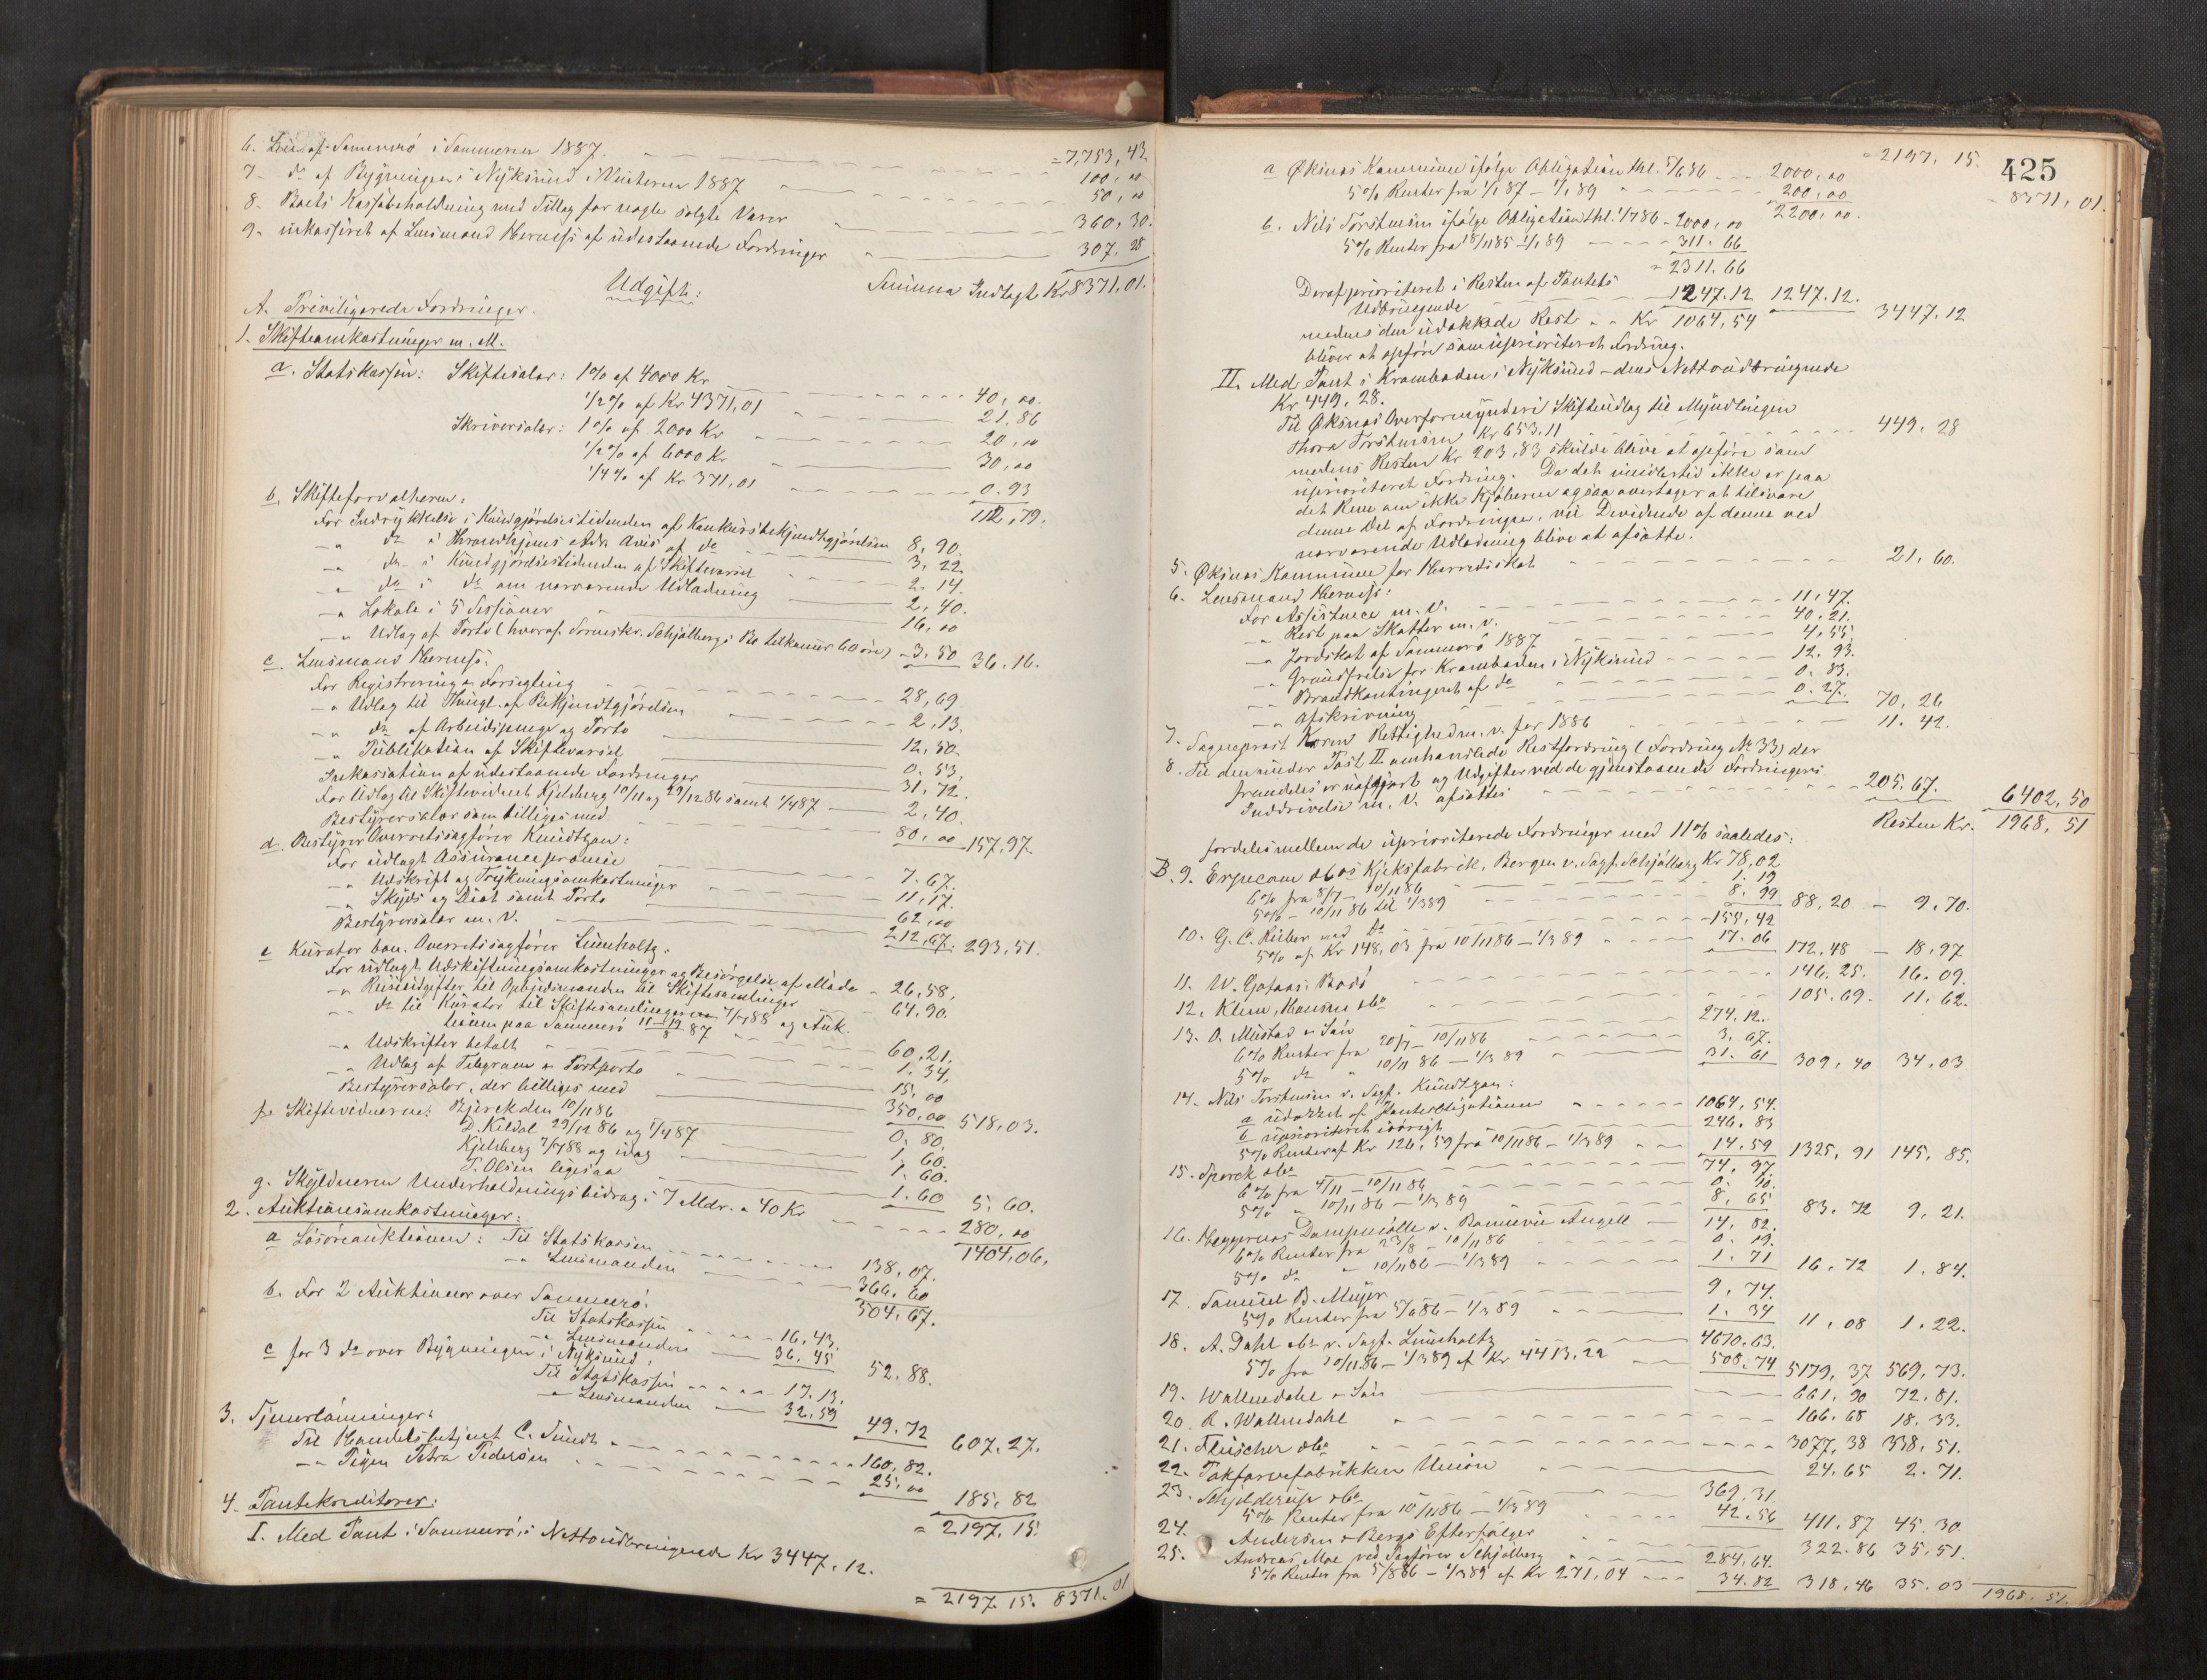 = 7,753,43.
6. Leie af Sommerø i Sommeren 1887. 100,00
7. do af Bygningen i Nyksund i Vinteren 1887 50,00
8. Boets Kassabeholdning med Tillæg for nogle solgte Varer 360,30.
9. inkasseret af Lensmand Hernæss af udestaaende Fordringer 307.28
Summa Indtægt Kr 8371,01.
Udgift:
A. Priviligerede Fordringer.
1. Skifteomkostninger m. M.
a. Statskassen: Skiftesalær: 1% af 4000 Kr 40,00.
1/2% af Kr 4371,01 21.86
Skriversalær: 1% af 2000 Kr 20,00
1/2% af 6000 Kr 30,00
1/4% af Kr 371,01 0.93
112,79.
b. Skifteforvalteren:
For Indrykkelse i Kundgjørelsestidenden af Konkursbekjendtgjørelsen 8,90.
-"- do i Throndhjems Adr. Avis af do 3,22.
-"- do i Kundgjørelsestidenden af Skiftevarsel 2.14.
-"- do i do om nærværende Udlodning 2,40.
-"- Lokale i 5 Sessioner 16,00
-"- Udlæg af Porto (hvoraf Sorenskr. Schjølbergs Bo tilkommer 60 øre) 3.50 36.16.
c. Lensmand Hernæss:
For Registrering og Forsegling 28,69.
-"- Udlæg til Thingl. af Bekjendtgjørelsen 2,13.
-"- do af Arbeidspenge og Porto 12,50.
-"- Publikation af Skiftevarsel 0.53.
Inkassation af udestaaende Fordringer 31,72.
For Udlæg til Skiftevidnet Kjelsberg 10/11 og 29/12 86 samt 1/4 87 2,40.
Bestyrersalær som billiges med 80,00 157,97.
d. Bestyrer Overretssagfører Knudtzon:
For udlagt Assurancepræmie 7.67.
-"- Udskrift og Trykningsomkostninger 11,17.
-"- Skyds og Diæt samt Porto 62,00
Bestyrersalær m. v. 212,67. 293,51.
e. Kurator bon. Overretssagfører Lumholtz:
For udlagt Udskiftningsomkostninger og Besørgelse af Møde 26,58.
-"- Reiseudgifter til Opbudsmanden til Skiftesamlinger 64.90.
-"- do til Kurator til Skiftesamlingerne 7/7 88 og Auk-
tionen paa Sommerø 11-19/8 87 60,21.
-"- Udskrifter betalt 1.34.
-"- Udlæg af Telegram & Postporto 15,00
Bestyrersalær, der billiges med 350,00 518,03.
f. Skiftevidnerne: Bjerckden 10/11 86 0,80.
D. Kildal 29/12 86 og 1/4 87 1,60.
Kjelsberg 7/7 88 og idag 1.60.
P. Olsen ligesaa 1.60 5,60.
g. Skyldneren Underholdningsbidrag i 7 Mdr. a 40 Kr 280,00
1404,06.
2. Auktionsomkostninger:
a Løsøreauktionen: Til Statskassen 138,07.
-"- Lensmanden 366,60
504,67.
b. For 2 Auktioner over Sommerø.
Til Statskassen 16,43.
-"- Lensmanden 36,45 52,88.
c for 3 do over Bygningen i Nyksund,
Til Statskassen 17.13.
-"- Lensmanden 32,59 49,72 607,27.
3. Tjenerlønninger:
Til Handelsbetjent C. Sundt 160,82.
-"- Pigen Petra Pedersen 25,00 185,82
= 2197,15.
4. Pantekreditorer:
I. Med Pant i Sommerø, i Nettoudbringende Kr 3447,12.
= 2197.15. 8371.01
425
= 2197,15. = 8371,01.
a Øksnes Kommune ifølge Obligation thl. 5/6 86 2000,00
5% Renter fra 1/1 87 - 1/1 89 200,00
2200,00.
b. Nils Torstensen ifølge Obligation thl. 1/7 86 - 2000,00
5% Renter fra 18/11 85 - 1/1 89 311.66
= 2311.66
Deraf prioriteret i Resten af Pantets
Udbringende 1247.12 1247.12. 3447.12
medens den udækkede Rest Kr 1064,54
bliver at opføre som uprioriteret Fordring.
II. Med Pant i Kramboden i Nyksund - dens Nettoudbringende
Kr 449,28.
Til Øksnes Overformynderi Skifteudlæg til Myndlingen
Thora Torstensen Kr 653,11 449.28
medens Resten Kr 203,83 skulde blive at opføre som
uprioriteret Fordring. Da det imidlertid ikke er paa
det Rene om ikke Kjøberen ogsaa overtager at tilsvare
denne Del af Fordringen, vil Dividende af denne ved
nærværende Udlodning blive at afsætte.
5. Øksnes Kommune for Herredsskat 21,60.
6. Lensmand Hernæss:
For Assistance m. v. 11,47.
-"- Rest paa Skatter m. v. 40,21.
-"- Jordskat af Sommerø 1887 4,55.
-"- Grundfrelse for Kramboden i Nyksund 12,93.
-"- Brandkontingent af do 0.83.
-"- Afskrivning 0.27. 70,26
7. Sogneprest Koren Rettighed m. v. for 1886 11.42.
8. Til den under Post II omhandlede Restfordring (Fordring No 33) der
fremdeles er uafgjort og Udgifter ved de gjenstaaende Fordringers
Inddrivelse m. v. afsættes 205.67. 6402,50
Resten Kr. 1968,51
fordeles mellem de uprioriterede Fordringer med 11% saaledes:
B. 9. Erpecom & Co's Kjeksfabrik, Bergen v. Sagf. Schjølberg Kr 78,02
6% fra 8/7 - 10/11 86 1.19
5% - 10/11 86 til 1/3 89 8.99 88,20 - 9.70.
10. G. C. Rieber med do 155,42
5% af Kr 148,03 fra 10/11 86 - 1/3 89 17.06 172,48 - 18,97
11. W. Gotaas, Bodø 146.25. 16.09.
12. Klem, Hansen & Co 105.69. 11,62.
13. O. Mustad & Søn 274,12.
6% Renter fra 20/7 - 10/11 86 3.67.
5% do " 10/11 86 - 1/3 89 31.61 309,40 34.03
14. Nils Torstensen v. Sagf. Knudtzon:
a udækket af Panteobligationen 1064,54.
b uprioriteret iøvrigt 246.83
5% Renter af Kr 126,59 fra 10/11 86 - 1/3 89 14.59 1325,91 145,85.
15. Sporck & Co 74,97.
6% fra 5/11 - 10/11 86 0.10.
5% " 10/11 86 - 1/3 89 8,65 83.72 9,21.
16. Heggernes Dampmølle v. Angell 14,82.
6% Renter fra 23/8 - 10/11 86 0.19.
5% do " 10/11 86 - 1/3 89 1.71 16,72 1.84.
17. Samuel B. Meyer 9,74.
5% Renter fra 5/6 86 - 1/3 89 1.34 11,08 1.22.
18. A. Dahl & Co v. Sagf. Lumholtz 4670.63.
5% fra 10/11 86 - 1/3 89 af Kr 4413.22 508.74 5179,37 569,73.
19. Wallendahl & Søn 661,90 72.81.
20. R. Wallendahl 166.68 18.33.
21. Fleischer & Co 3077,38 338,51.
22. Takfarvefabrikken Union 24,65 2.71.
23. Schjelderup & Co 369,31.
5% Renter fra 10/11 86 - 1/3 89 42.56 411,87 45.30.
24. Andersen & Bergs Efterfølger 322.86 35,51.
25. Andreas Moe ved Sagfører Schjølberg 284,64.
5% Renter fra 5/8 86 - 1/3 89 af Kr 271,04 34.82 318,46 35.03 1968,51.